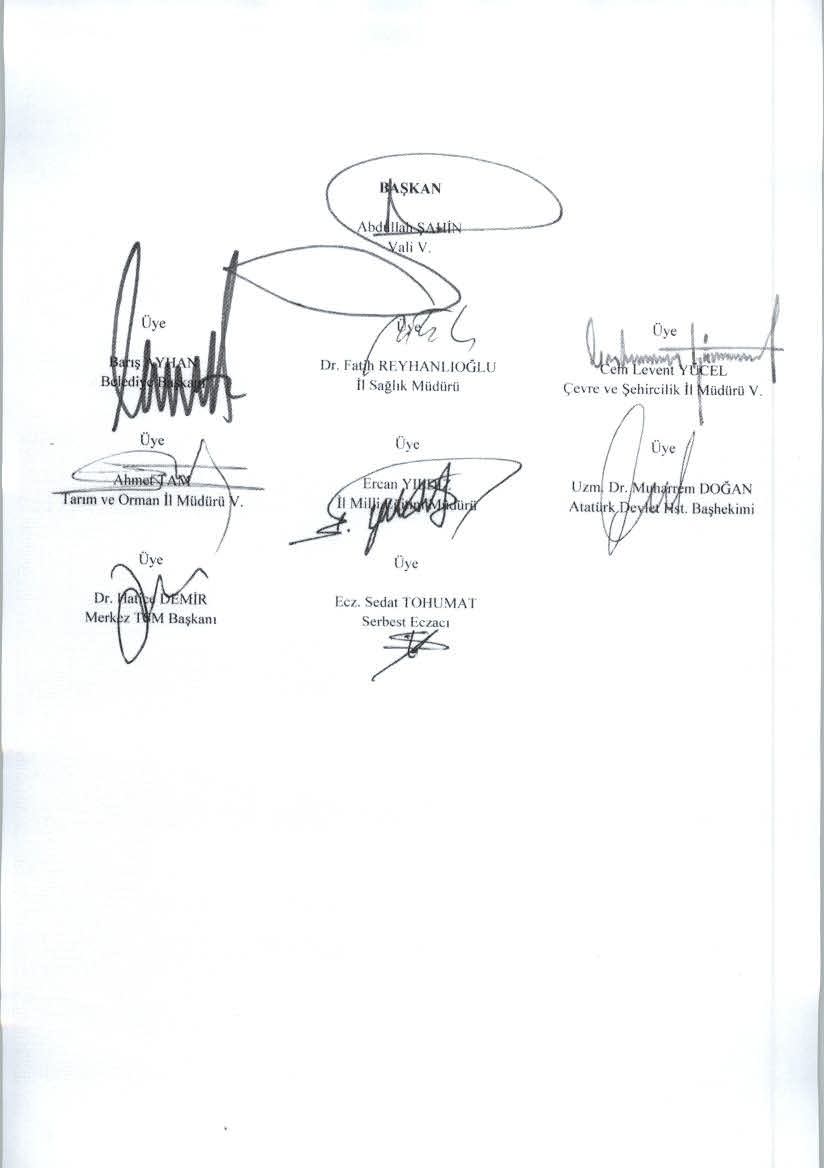 BAŞKAN
Abdullah ŞAHİN
Vali V.
Üye
Barış AYHAN
Belediye Başkanı
Üye
Dr. Fatih REYHANLIOĞLU
İl Sağlık Müdürü
Üye
Cem Levent YÜCEL
Çevre ve Şehircilik İl Müdürü V.
Üye
Ahmet
Tarım ve Orman İl Müdürü V.
Üye
Ercan
İl Milli Eğitim Müdürü
Üye
Uzm. Dr. Muharrem DOĞAN
Atatürk Devlet Hst. Başhekimi
Üye
Dr. Hatice DEMİR
Merkez TSM Başkanı
Üye
Ecz. Sedat TOHUMAT
Serbest Eczacı